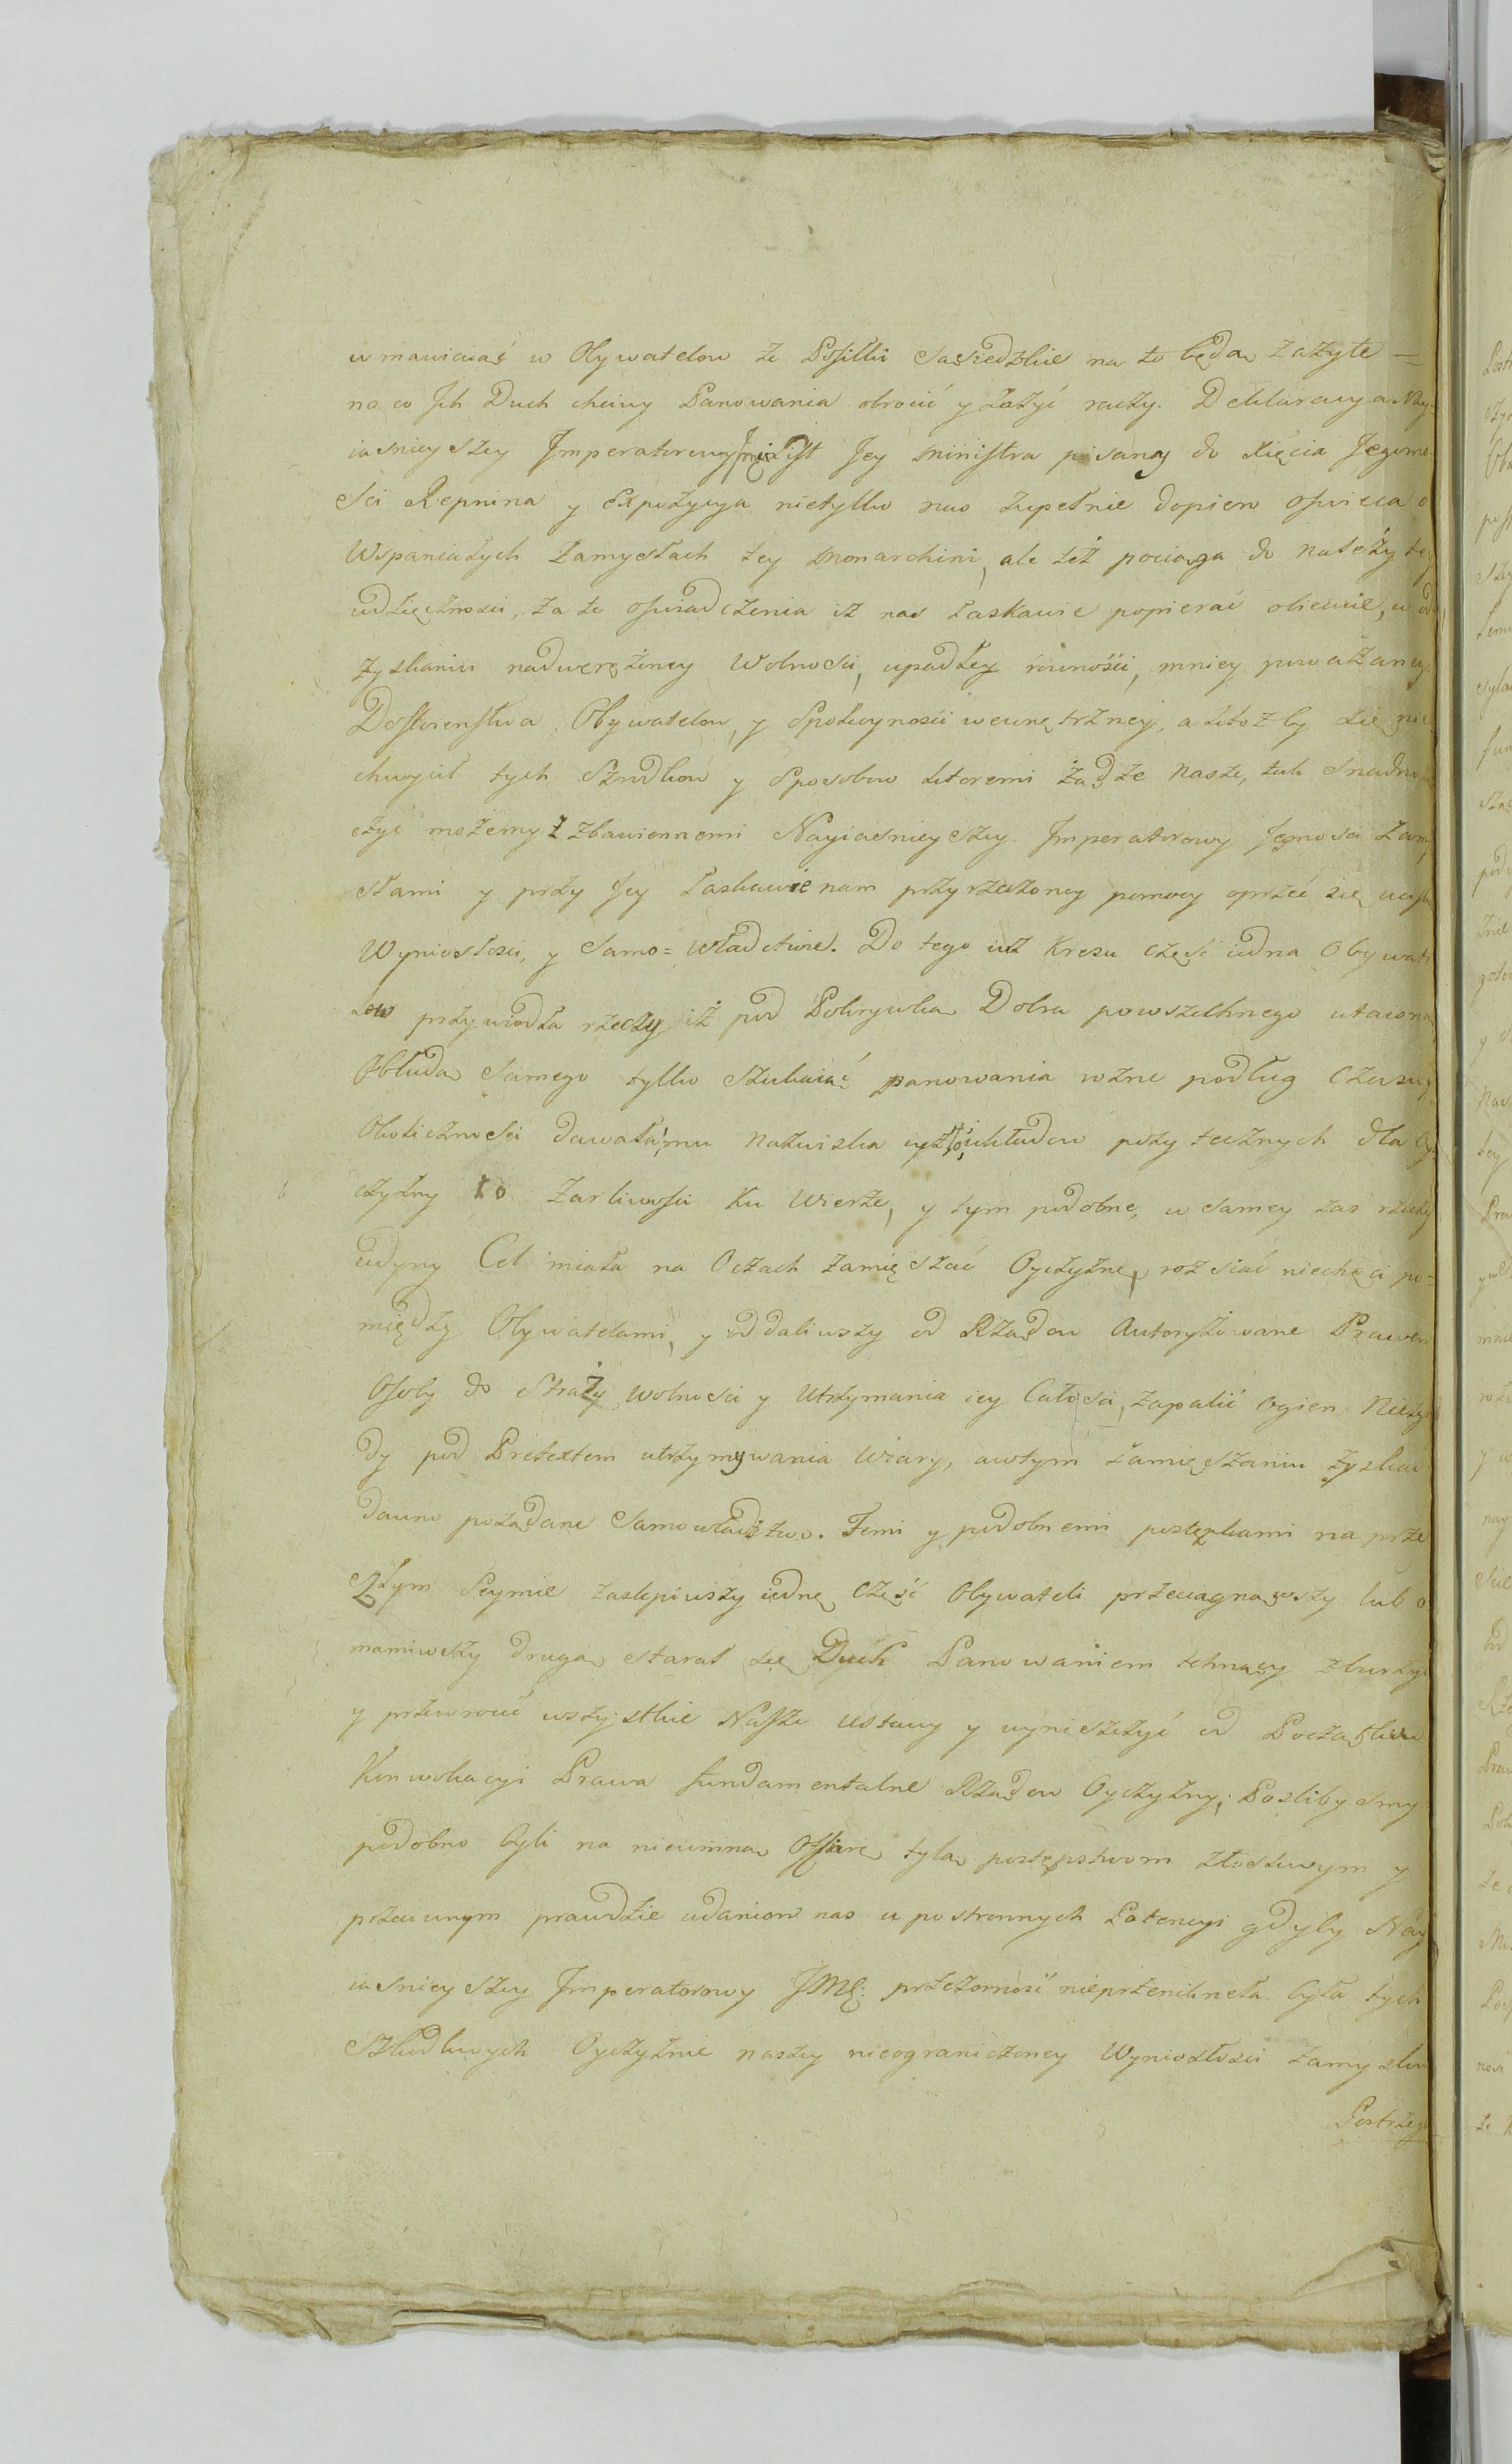 wmawiaiąć w Obywatelow że Possiłki Sąsiedzkie na to będą zażyte —
na co Jch Duch chciwy Panowania obrocić y zażyć raczy. Deklaracya Nay-
iasnieyszey Jmperatorowy Jmci List Jey Ministra pisany do Xięcia Jegomo-
sci Repnina y Expozycya nietylko nas zupełnie dopiero oswieca o
Wspaniałych Zamysłach tey Monarchini, ale też pociąga do należytey
wdzięczności, za te oswiadczenia iż nas łaskawie popierać obiecuie, w od
zyskaniu nadwerężoney Wolnosci, upadłey rownośći, mniey uważanego
Dostoienstwa Obywatelow, y Spokoynosci wewnętrzney, a ktoż by się nie
chwycił tych Szrodkow y Sposobow ktoremi żądze nasze, tak snadno
czyć możemy z zbawiennemi Nayiasnieyszey Jmperatorowy Jegmosci Zamy
słami y przy Jey łaskawie nam przyrzeczoney pomocy oprzeć się
Wyniosłosci, y Samo=władctwie. Do tego iuż Kresu część iedna Obywate
low przywiodła rzeczy iż pod Pokrywką Dobra powszechnego utaioną
Obłudą samego tylko szukaiąć panowania rożne podług Czasu y
Okolicznosci dawała mu nazwiska iużto układow pożytecznych dla Oy-
czyzny to Zarliwosci Ku wierze, y tym podobne, w samey zas rzeczy
iedyny Cel miała na Oczach zamięszać Oyczyznę, rozsiać niechęci po=
między Obywatelami, y oddaliwszy od Rządow Autoryzowane Prawem
Osoby do Straży wolnosci y Utrzymania iey Całosci, zapalić ogien Niezgo
dy pod Pretextem utrzymywania Wiary, awtym zamięszaniu zyskać
dawno pożądane Samowładztwo. Temi y podobnemi postępkami na prze
szłym Seymie zaslepiwszy iednę Część Obywateli przeciągnąwszy lub o
mamiwszy drugą starał się Duch Panowaniem tchnący zburzyć
y przewrocić wszystkie Nasze ustawy y wyniszczyć od Początku
Konwokacyi Prawa fundamentalne Rządow Oyczyzny; Poszlibysmy
podobno byli na niewinną Ofiarę tylą postępstwom złosliwym y
przeciwnym prawdzie udaniom nas u postronnych Potencyi gdyby Nay
iasnieyszey Jmperatorowy JMC: przezorność nieprzeniknęła była tych
Szkodliwych Oyczyznie naszey nieograniczoney Wyniosłosci zamysłow
Postrzeg